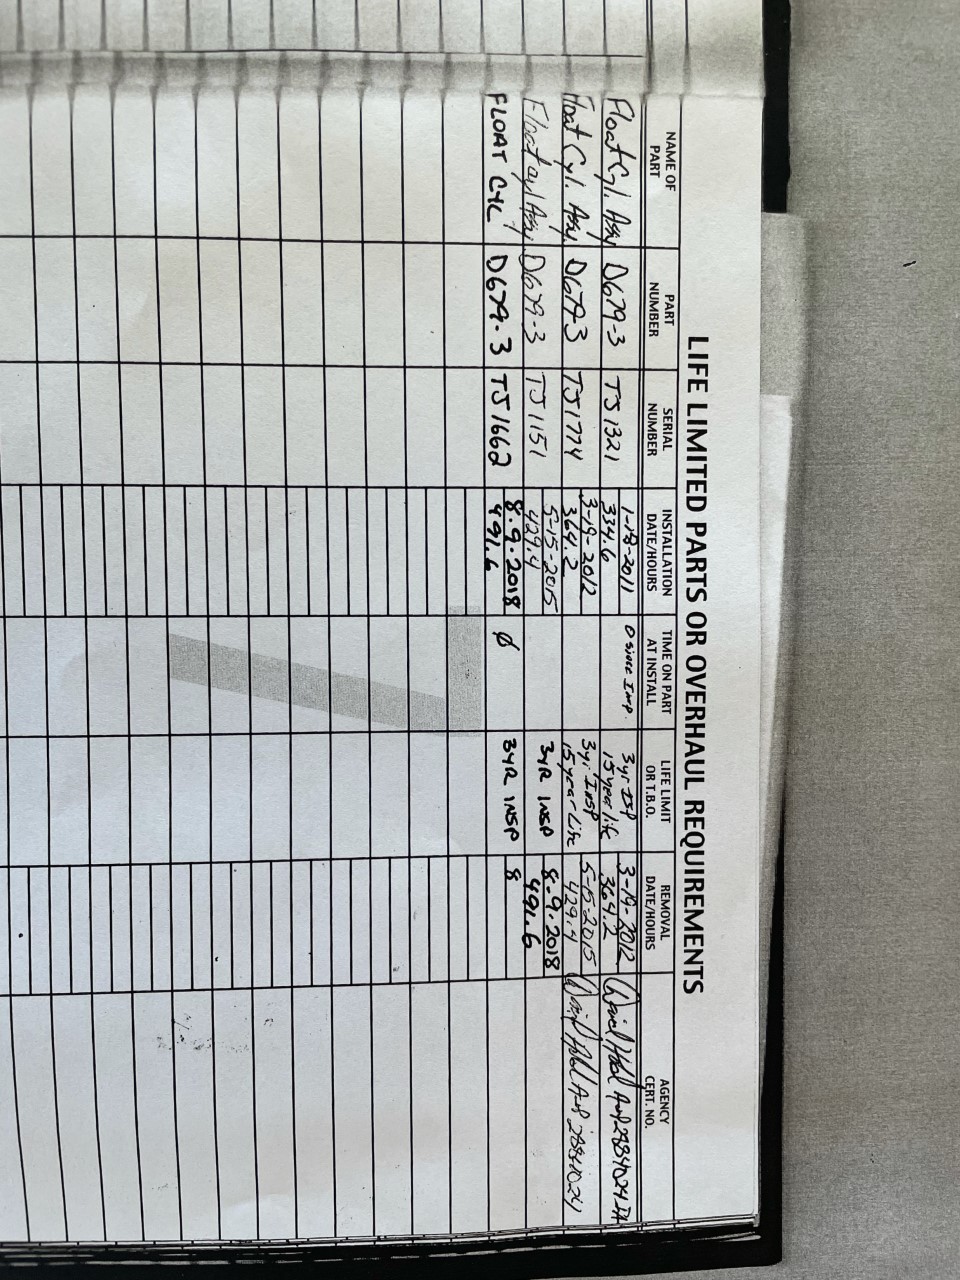 LIFE LIMITED PARTS OR OVERHAUL REQUIREMENTS
NAME OF PART
PART NUMBER
SERIAL NUMBER
INSTALLATION DATE/HOURS
TIME ON PART AT INSTALL
LIFE LIMIT OR T.B.O.
REMOVAL DATE/HOURS
AGENCY CERT. NO.
Float Cyl. Assy D679-3 TJ1321 1-18-2011 0 since Insp. 3yr ISP 3-19-2012
334.6 15 year life 364.2
Float Cyl. Assy. D679-3 TJ1774 3-19-2012 3yr. INSP 5-15-2015
364.2 15 year Life 429.4
Float cyl Assy D679-3 TJ1151 5-15-2015 3yR INSP 8-9.2018
429.4 491.6
FLOAT CYL D679-3 TJ1662 8.9.2018 Ø 3YR INSP 8
491.6